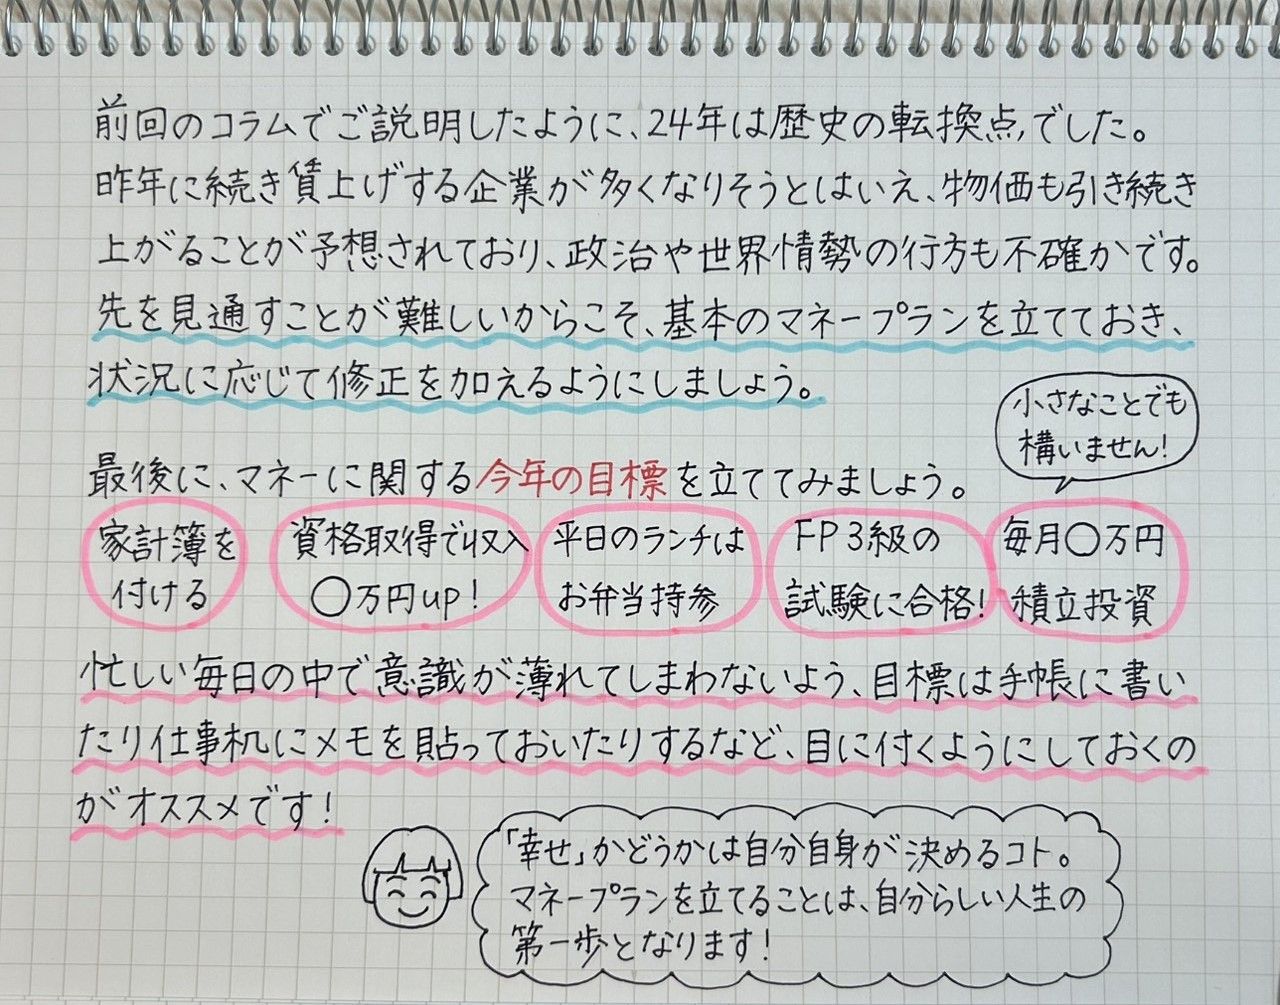 前回のコラムでご説明したように、24年は歴史の転換点でした。
昨年に続き賃上げする企業が多くなりそうとはいえ、物価も引き続き
上がることが予想されており、政治や世界情勢の行方も不確かです。
先を見通すことが難しいからこそ、基本のマネープランを立てておき、
状況に応じて修正を加えるようにしましょう。
小さなことでも
構いません!
最後に、マネーに関する今年の目標を立ててみましょう。
家計簿を
付ける
資格取得で収入
〇万円up!
平日のランチは
お弁当持参
FP3級の
試験に合格!
毎月〇万円
積立投資
忙しい毎日の中で意識が薄れてしまわないよう、目標は手帳に書い
たり仕事机にメモを貼っておいたりするなど、目に付くようにしておくの
がオススメです!
「幸せ」かどうかは自分自身が決めるコト。
マネープランを立てることは、自分らしい人生の
第一歩となります!